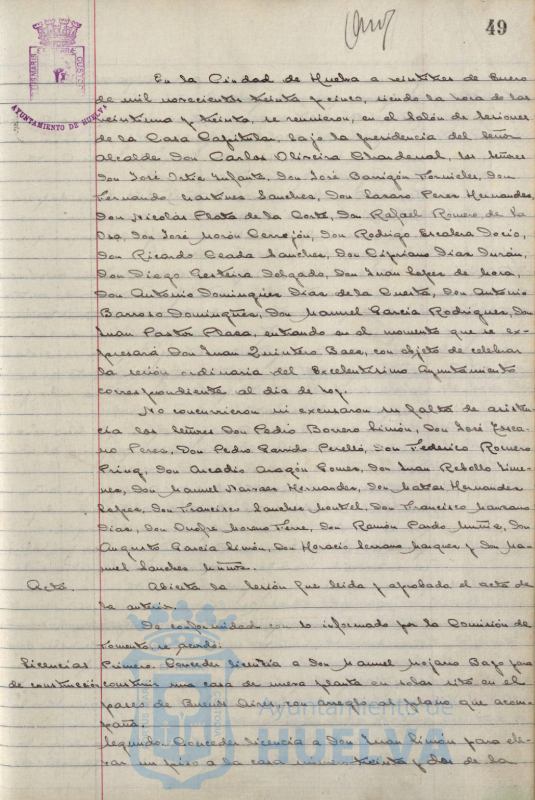 49
AYUNTAMIENTO DE HUELVA
En la Ciudad de Huelva a veintitres de Enero
de mil novecientos treinta y cinco, siendo la hora de las
veintiuna y treinta, se reunieron, en el Salón de Sesiones
de la Casa Capitular, bajo la presidencia del Señor
Alcalde Don Carlos Oliveira Chardenal, los Señores
Don José Ortiz Infante, Don José Barrigón Fornieles, Don
Fernando Martinez Sanchez, Don Lazaro Perez Hernandez,
Don Nicolás Plata de la Corte, Don Rafael Romero de la
Osa, Don José Morón Cerrejón, Don Rodrigo Escalera Docio,
Don Ricardo Ceada Sanchez, Don Cipriano Dias Durán,
Don Diego Gesteira Delgado, Don Juan Lopez de Mora,
Don Antonio Dominguez Dias de la Cuesta, Don Antonio
Barroso Dominguez, Don Manuel Garcia Rodriguez, Don
Juan Pastor Plaza, entrando en el momento que se ex-
presará Don Juan Quintero Baez, con objeto de celebrar
la sesión ordinaria del Excelentísimo Ayuntamiento
correspondiente al dia de hoy.
No concurrieron ni excusaron su falta de asisten-
cia los Señores Don Pedro Borrero Limón, Don José Tosca-
no Perez, Don Pedro Garrido Perelló, Don Federico Romero
Don Arcadio Aragón Gomez, Don Juan Rebollo Jime-
nez, Don Manuel Narvaez Hernandez, Don Matias Hernandez
Lopez, Don Francisco Sanchez Montiel, Don Francisco Manzano
Dias, Don Onofre Moreno Don Ramón Pardo Muñiz, Don
Augusto Garcia Limón, Don Horacio Serrano Marquez y Don Ma-
nuel Sanchez Muñoz.
Acta. Abierta la sesión fue leida y aprobada el acta de
la anterior.
De conformidad con lo informado por la Comisión de
Fomento, se acordó:
Licencias Primero. Conceder licencia a Don Manuel Mojarro Bayo para
de construcción construir una casa de nueva planta en solar sito en el
paseo de Buenos Aires, con arreglo al plano que acom-
paña.
Segundo. Conceder licencia a Don Juan Limón para ele-
var un piso a la casa número treinta y dos de la
Ayuntamiento de
HUELVA